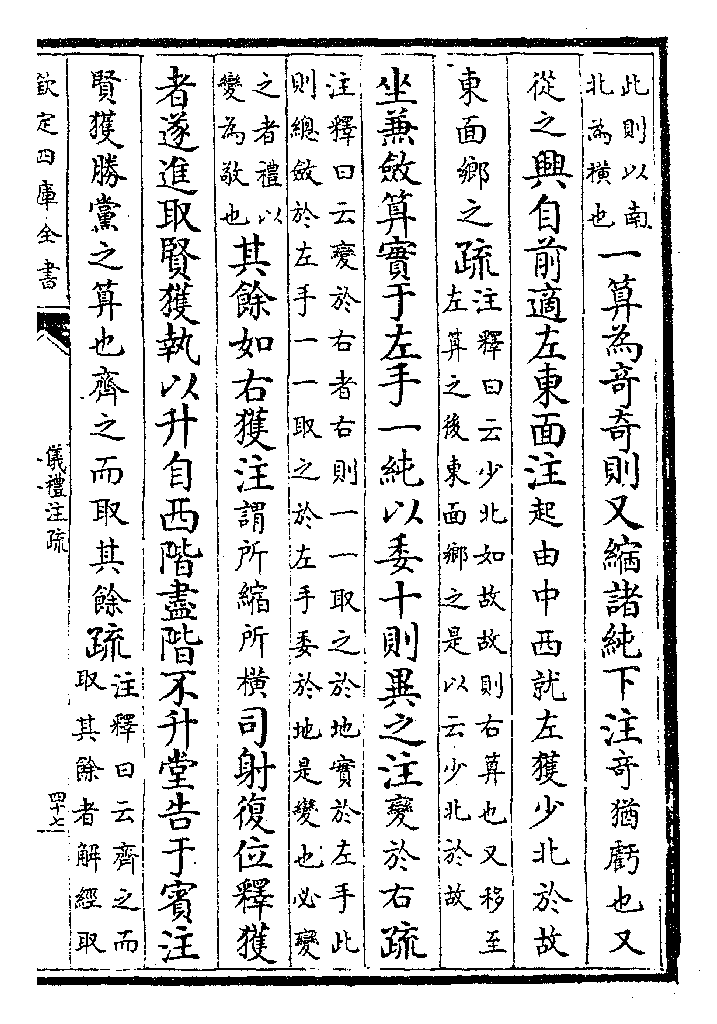 此則以南
北為横也
一算為竒竒則又縮諸純下注竒猶虧也又
從之興自前適左東面注起由中西就左獲少北於故
東面鄉之疏
注釋曰云少北如故故則右算也又移至
左算之後東面鄉之是以云少北於故
坐兼斂算實于左手一純以委十則異之注變於右疏
注釋曰云變於右者右則一一取之於地實於左手此
則總斂於左手一一取之於左手委於地是變也必變
之者禮以
變為敬也
其餘如右獲注謂所縮所横司射復位釋獲
者遂進取賢獲執以升自西階盡階不升堂告于賓注
賢獲勝黨之算也齊之而取其餘疏
注釋曰云齊之而
取其餘者解經取
欽定四庫全書
儀禮注疏
四十七